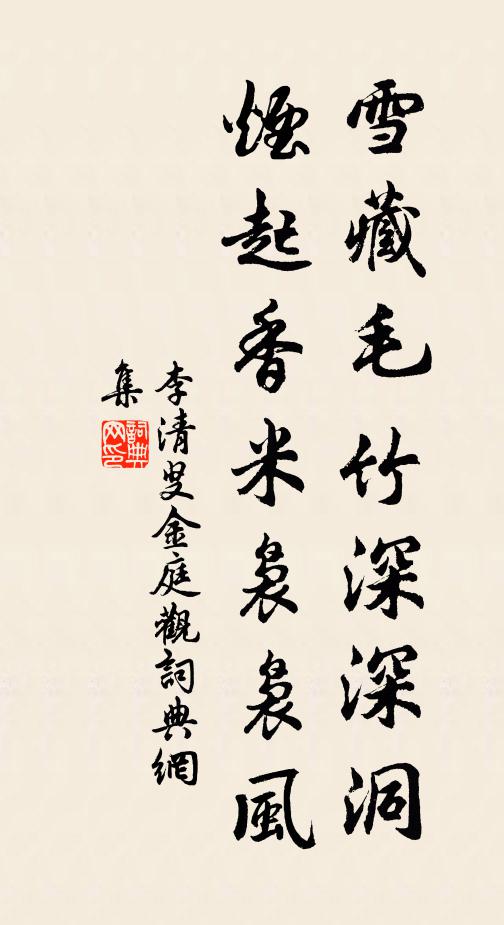 雪藏毛竹深深洞
煙起香米裊裊風
李清叟金庭觀詞典網
集
詞典
网印